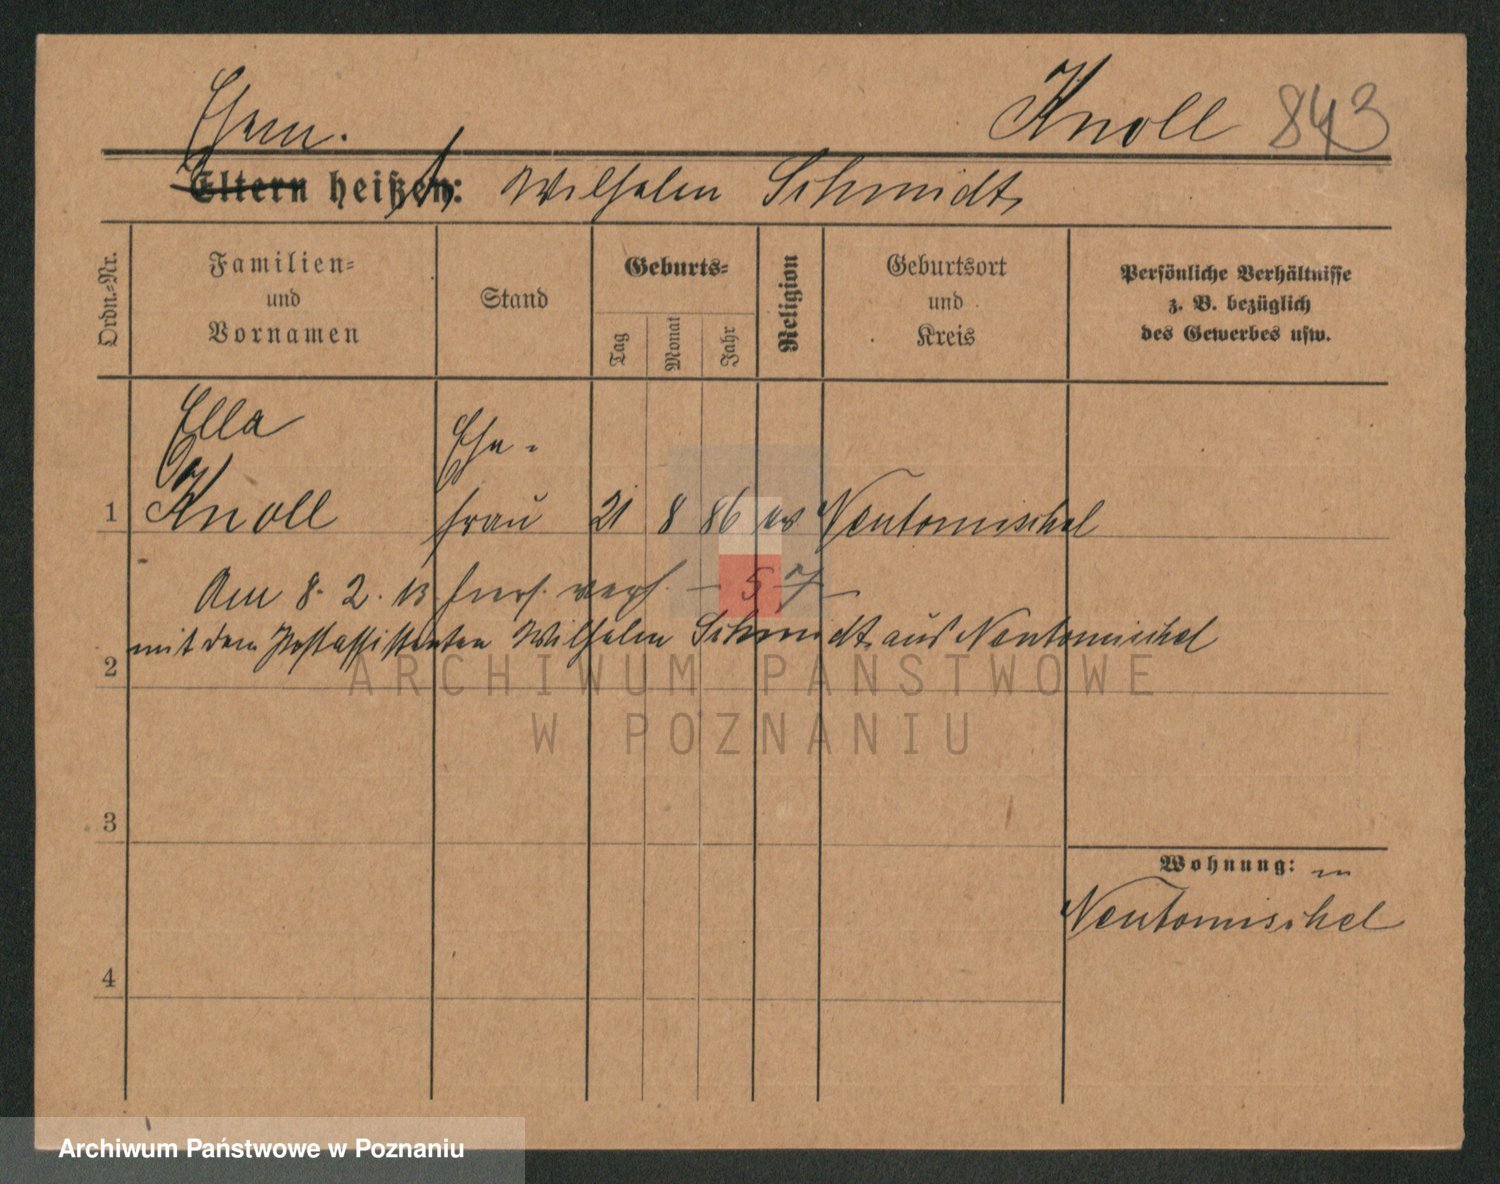 Knoll 843
Ehem.
Eltern heißen: Wilhelm Schmidt,
Ordn.-Nr.
Familien-
und
Vornamen
Stand
Geburts-
Tag
Monat
Jahr
Religion
Geburtsort
und
Kreis
Persönliche Verhältnisse
z. B. bezüglich
des Gewerbes usw.
Ella
Knoll
Ehe-
frau
1
21 8 86 ev Neutomischel
Am 8. 2. 13 – 57 –
mit dem Postassistenten Wilhelm Schmidt aus Neutomischel
2
3
4
Wohnung: in
Neutomischel
ARCHIWUM PAŃSTWOWE
W POZNANIU
Archiwum Państwowe w Poznaniu